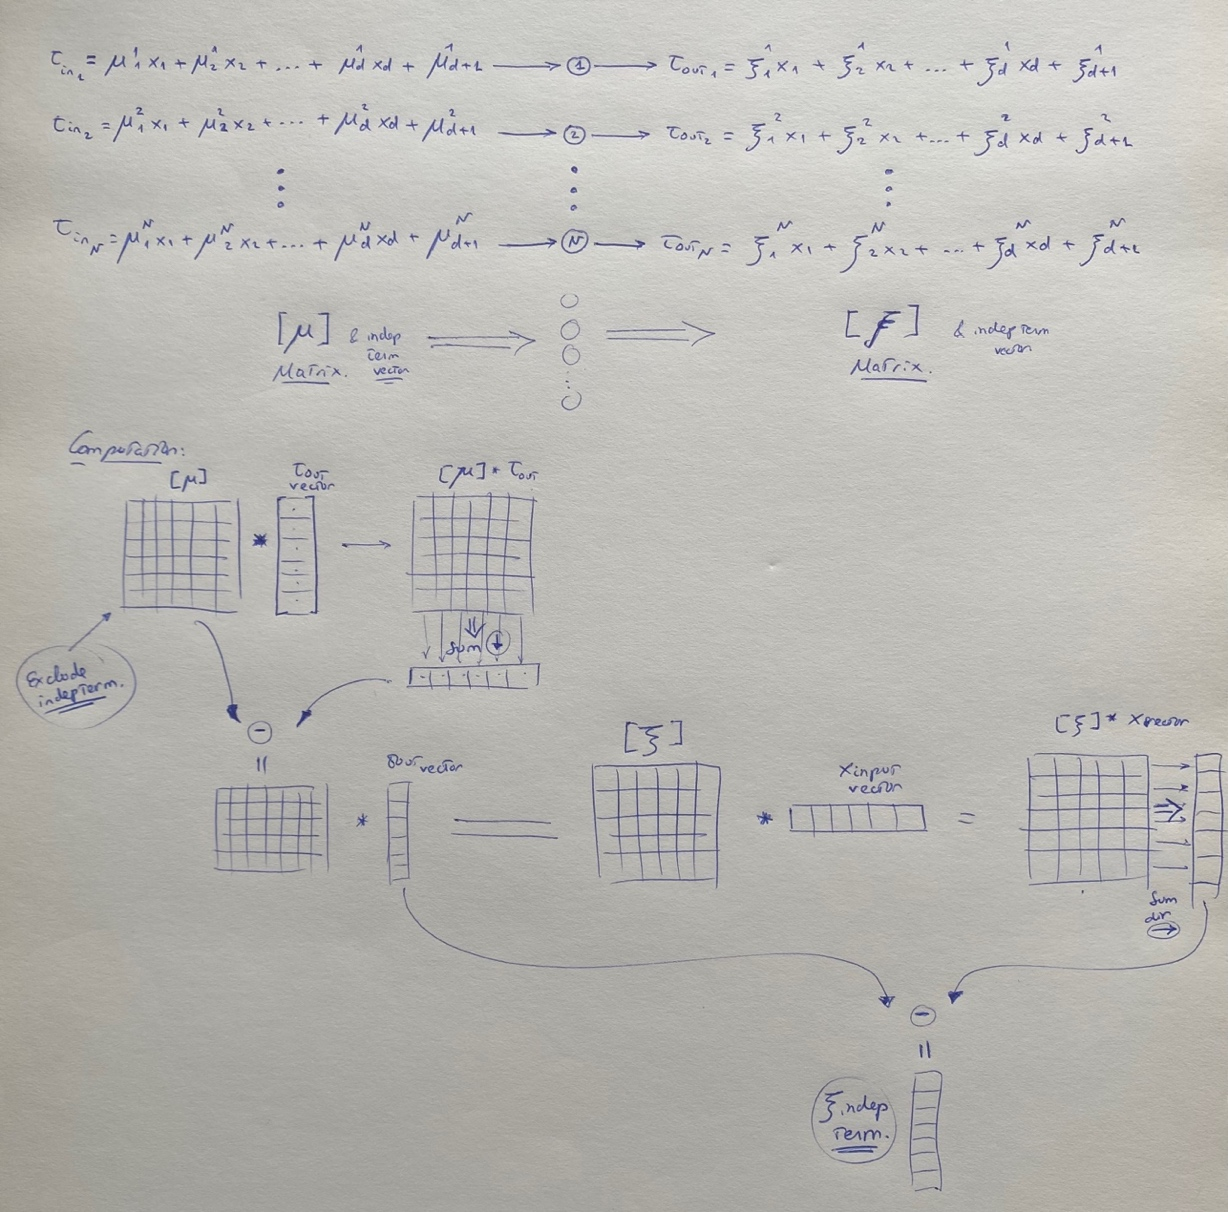 τin₁ = μ₁¹x₁ + μ₂¹x₂ + ... + μd¹xd + μd+1¹ → ① → τout₁ = ξ₁¹x₁ + ξ₂¹x₂ + ... + ξd¹xd + ξd+1¹
τin₂ = μ₁²x₁ + μ₂²x₂ + ... + μd²xd + μd+1² → ② → τout₂ = ξ₁²x₁ + ξ₂²x₂ + ... + ξd²xd + ξd+1²
τinN = μ₁ᴺx₁ + μ₂ᴺx₂ + ... + μdᴺxd + μd+1ᴺ → Ⓝ → τoutN = ξ₁ᴺx₁ + ξ₂ᴺx₂ + ... + ξdᴺxd + ξd+1ᴺ
[μ] & indep Term vector ⇒ ⇒ [ξ] & indep Term vector
Matrix. Matrix.
Computation:
[μ] τout vector [μ]*τout
* →
sum ↓
Exclude
indepTerm.
−
=
vector [ξ] Xinput vector [ξ]* Xvector
* = * =
Sum
dir
→
−
=
ξindep
Term.